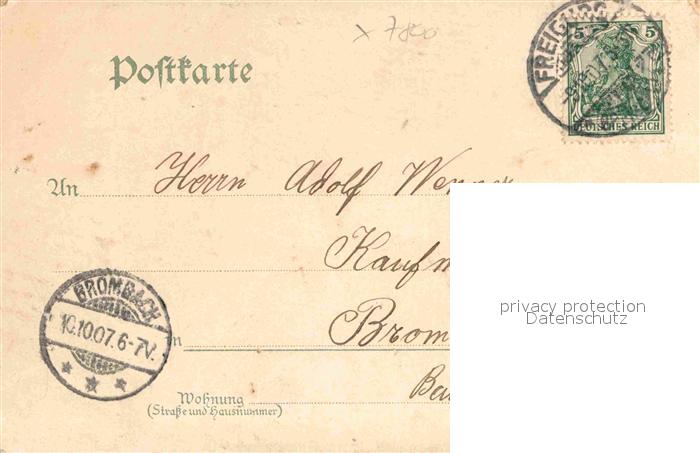 x 7800
Postkarte
5 5
DEUTSCHES REICH
FREIBURG
An Herrn Adolf Wenner
Kaufm
privacy protection
Datenschutz
BROMBACH
10.10.07.6-7V.
in Brom
Wohnung
(Straße und Hausnummer)